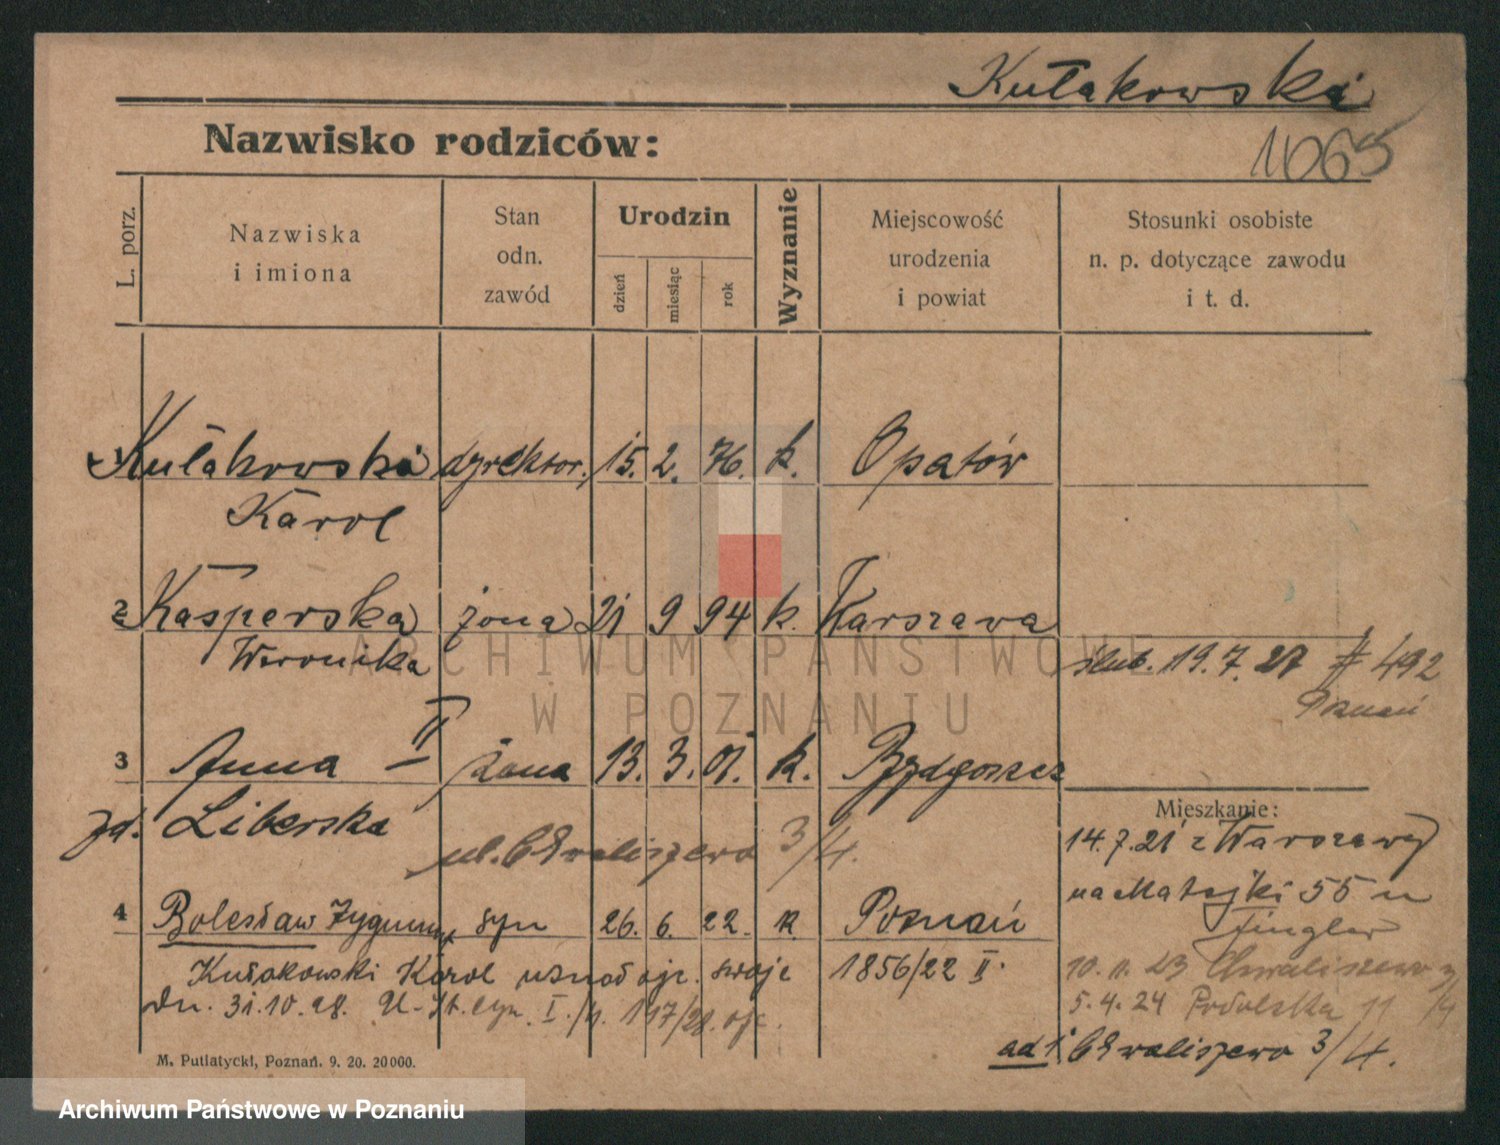 Kułakowski
1065
Nazwisko rodziców:
L. porz.
Nazwiska i imiona
Stan odn. zawód
Urodzin
dzień
miesiąc
rok
Wyznanie
Miejscowość urodzenia i powiat
Stosunki osobiste n. p. dotyczące zawodu i t. d.
Kułakowski dyrektor. 15. 2. 76. k. Opatów
Karol
2 Kasperska żona 21 9 94 k. Warszawa
Weronika
ślub. 19.7.27 # 492
Poznań
3 Anna II żona 13. 3. 01. k. Bydgoszcz
zd. Liberska
ul. Chwaliszewo 3/4.
Mieszkanie:
14.7.21 z Warszawy
na Matejki 55 u
4 Bolesław Zygmunt syn 26. 6. 22. k. Poznań
Kułakowski Karol uznał ojc. swoje 1856/22 II.
10.11.23 Chwaliszewo 3/4
Dn. 31.10.28.
5.4.24 Podolska 11
ad 1 Chwaliszewo 3/4.
M. Putiatycki, Poznań. 9. 20. 20000.
ARCHIWUM PAŃSTWOWE
W POZNANIU
Archiwum Państwowe w Poznaniu